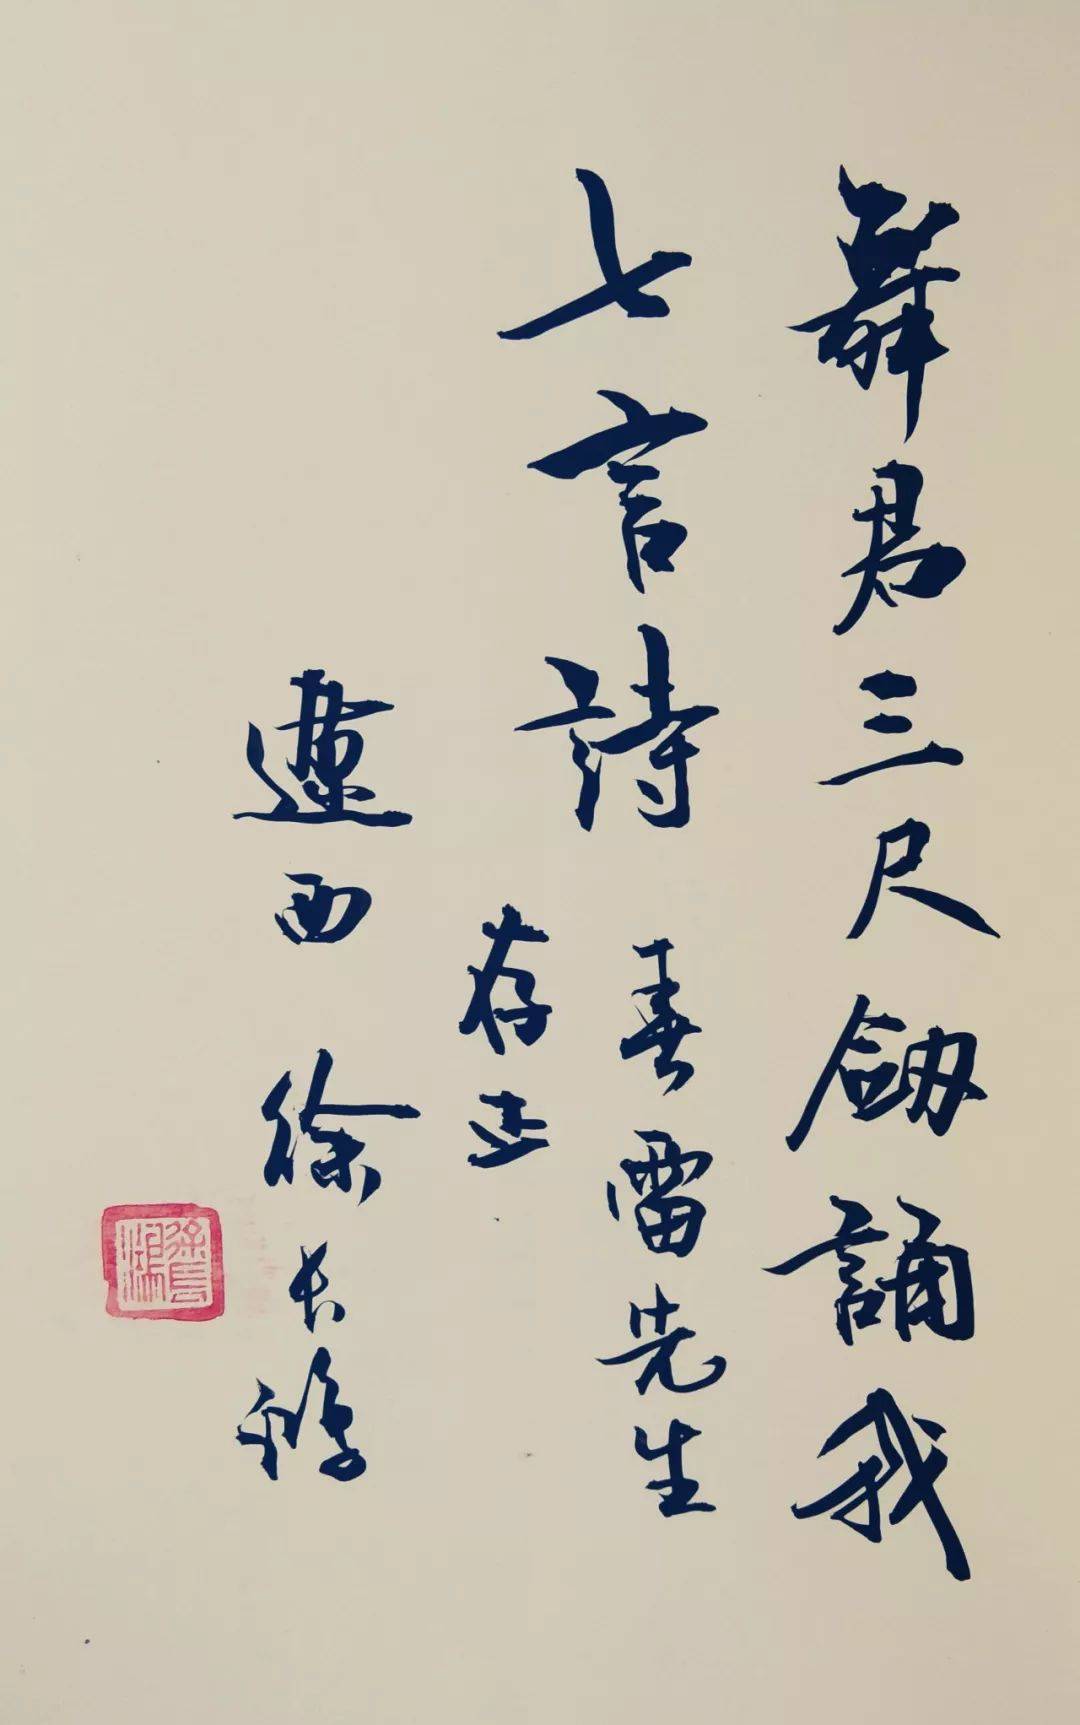 舞君三尺劒誦我
七言詩
春雷先生
存正
遼西 徐長鴻
徐長鴻